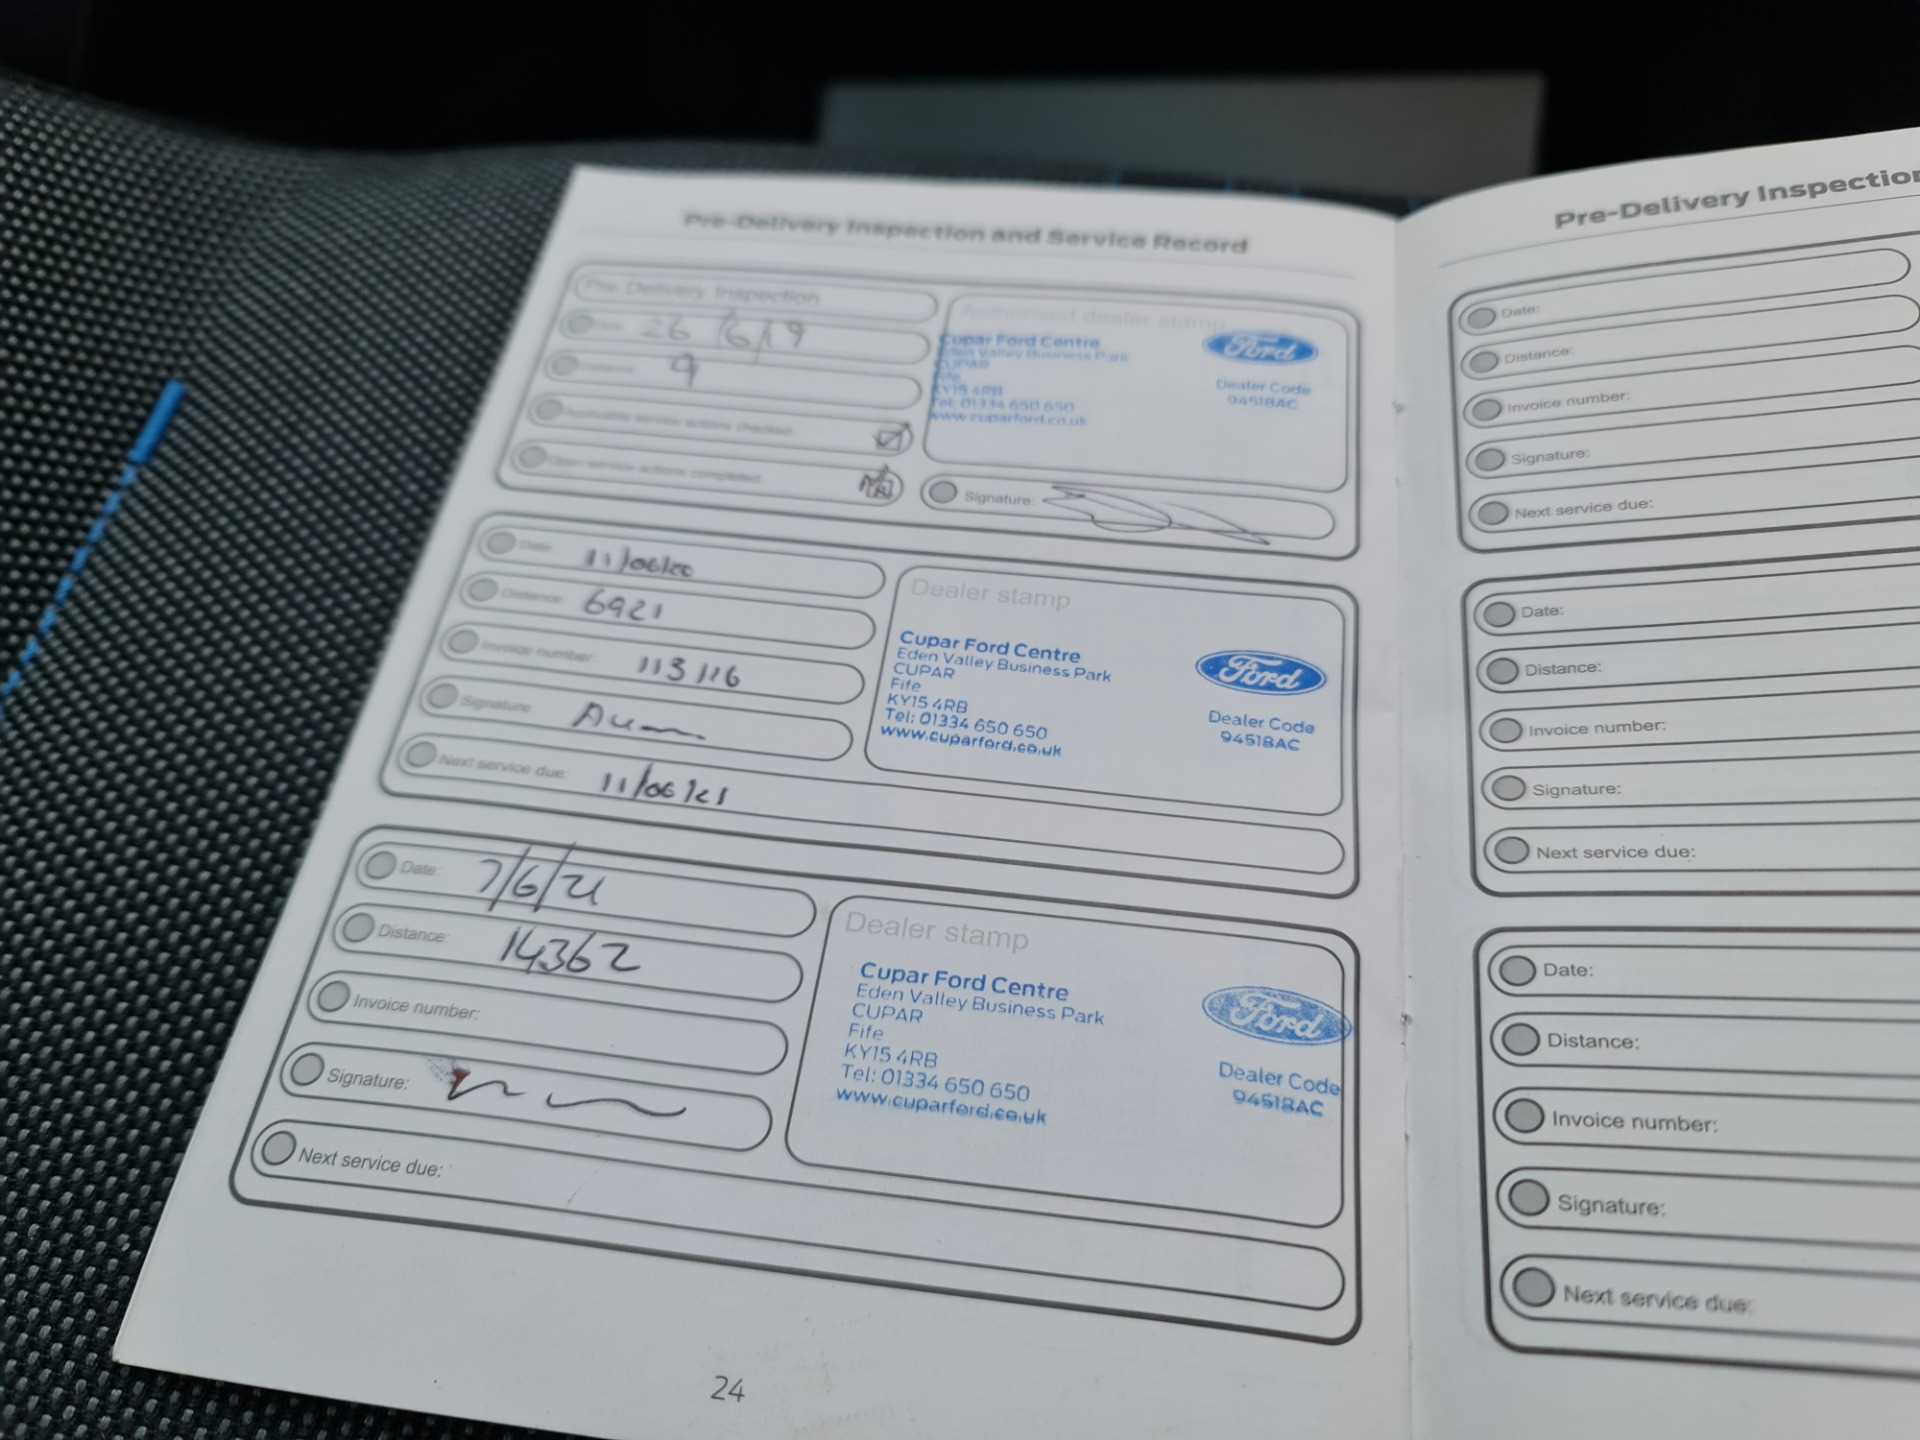 Pre-Delivery Inspection and Service Record
Pre-Delivery Inspection
Date: 26/6/19
Distance: 9
service actions checked
Open service actions completed
Authorised dealer stamp
Cupar Ford Centre
Eden Valley Business Park
CUPAR
Fife
KY15 4RB
Tel: 01334 650 650
www.cuparford.co.uk
Ford
Dealer Code
94518AC
Signature:
Date: 11/06/20
Distance: 6921
Invoice number: 113116
Signature:
Next service due: 11/06/21
Dealer stamp
Cupar Ford Centre
Eden Valley Business Park
CUPAR
Fife
KY15 4RB
Tel: 01334 650 650
www.cuparford.co.uk
Ford
Dealer Code
94518AC
Date: 7/6/21
Distance: 14362
Invoice number:
Signature:
Next service due:
Dealer stamp
Cupar Ford Centre
Eden Valley Business Park
CUPAR
Fife
KY15 4RB
Tel: 01334 650 650
www.cuparford.co.uk
Ford
Dealer Code
94518AC
24
Pre-Delivery Inspection
Date:
Distance:
Invoice number:
Signature:
Next service due:
Date:
Distance:
Invoice number:
Signature:
Next service due:
Date:
Distance:
Invoice number:
Signature:
Next service due: